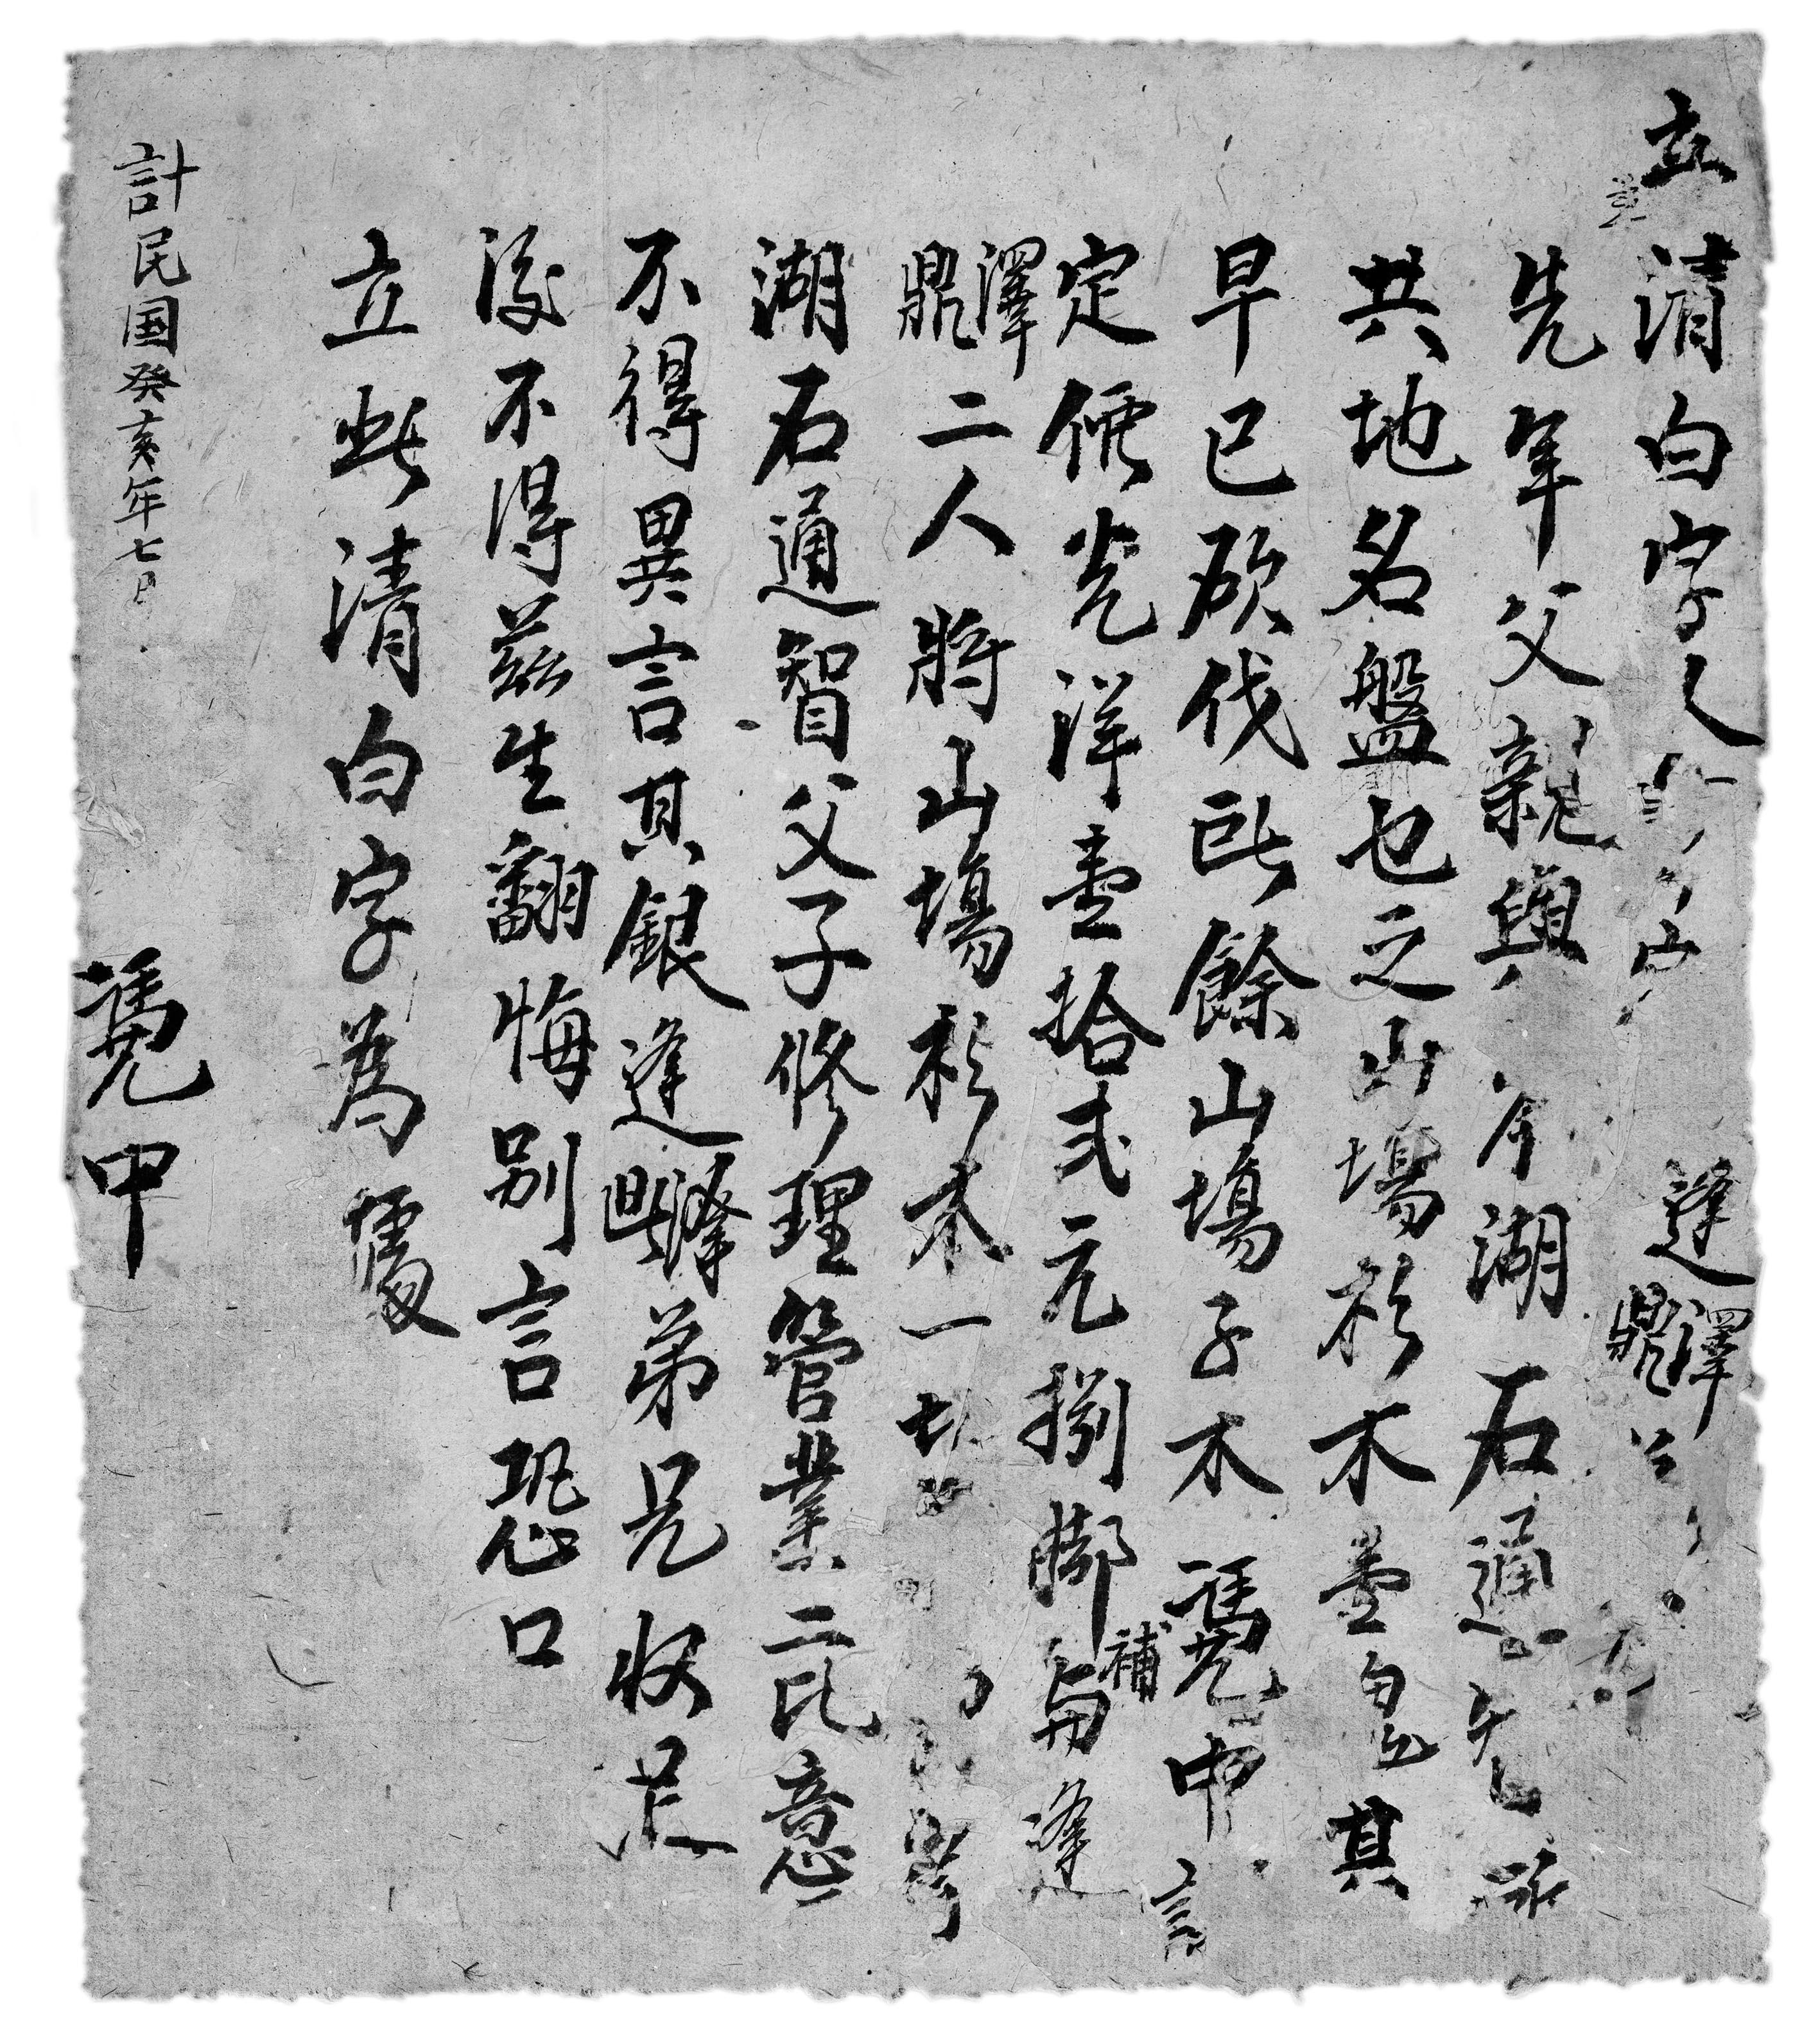 立清白字人 逢澤鼎
先年父親與 岑湖石通
共地名盤也之山場杉木壹皀其
早已砍伐所餘山場子木凴中言
定價光洋壹拾弍元捌脚補與逢
澤鼎二人將山場杉木一切
湖石通智父子修理管業二比意
不得異言其銀逢 弟兄收足
後不得茲生翻悔别言恐口
立此清白字為處
凴中
計民国癸亥年七日